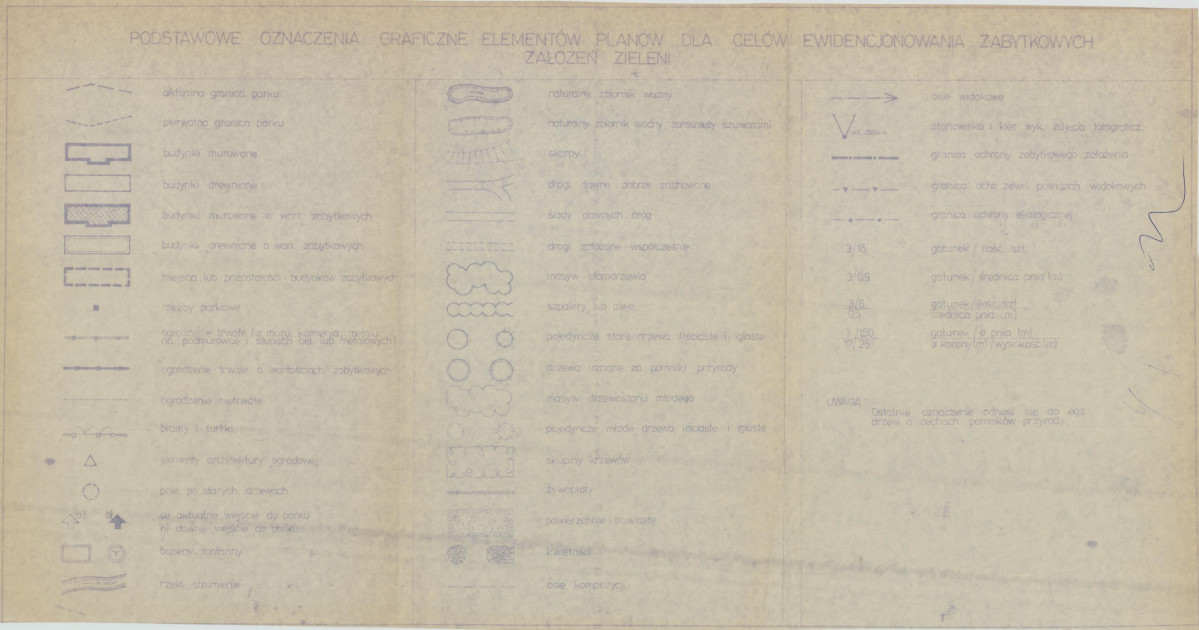 PODSTAWOWE OZNACZENIA GRAFICZNE ELEMENTÓW PLANÓW DLA CELÓW EWIDENCJONOWANIA ZABYTKOWYCH
ZAŁOŻEŃ ZIELENI
aktualna granica parku
pierwotna granica parku
budynki murowane
budynki drewniane
budynki murowane o wart. zabytkowych
budynki drewniane o wart. zabytkowych
miejsca lub pozostałości budynków zabytkowych
rzeźby parkowe
ogrodzenie trwałe (z muru, kamienia, metalu,
na podmurówce i słupach bet. lub metalowych)
ogrodzenie trwałe o wartościach zabytkowych
ogrodzenie nietrwałe
bramy i furtki
elementy architektury ogrodowej
pnie po starych drzewach
a) b)
a) aktualne wejście do parku
b) dawne wejście do parku
baseny, fontanny
rzeki, strumienie
naturalny zbiornik wodny
naturalny zbiornik wodny, zarośnięty szuwarami
skarpy
drogi dawne dobrze zachowane
ślady dawnych dróg
drogi założone współcześnie
masyw starodrzewia
szpalery lub aleje
pojedyncze stare drzewa liściaste i iglaste
drzewa uznane za pomniki przyrody
masyw drzewostanu młodego
pojedyncze młode drzewa liściaste i iglaste
skupiny krzewów
żywopłoty
powierzchnie trawiaste
kwietniki
osie kompozycji
osie widokowe
stanowisko i kier. wyk. zdjęcia fotograficz.
granica ochrony zabytkowego założenia
granica ochr. zewn. powiązań widokowych
granica ochrony ekologicznej
3/16 gatunek / ilość szt.
3/0,9 gatunek / średnica pnia (m)
3/6 gatunek / ilość szt.
0,5 średnica pnia (m)
1/150 gatunek / ø pnia (m)
17/26 ø korony (m) / wysokość (m)
UWAGA:
Ostatnie oznaczenie odnosi się do egz.
drzew o cechach pomników przyrody.